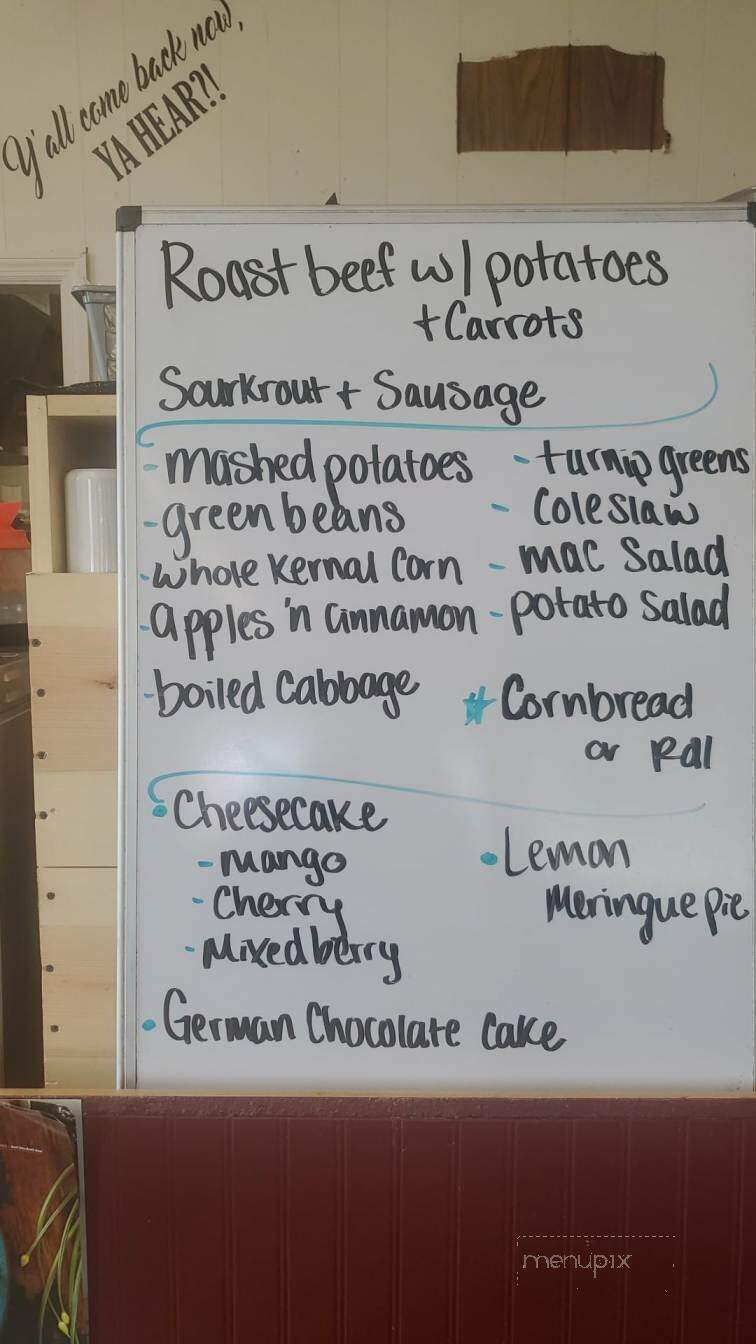 Y'all come back now,
YA HEAR?!
Roast beef w/ potatoes
+ Carrots
Sourkrout + Sausage
- mashed potatoes
- green beans
- whole kernal Corn
- apples 'n Cinnamon
- boiled Cabbage
- turnip greens
- Coleslaw
- mac Salad
- potato Salad
* Cornbread
or Roll
• Cheesecake
- mango
- Cherry
- Mixed berry
• Lemon
Meringue pie
• German Chocolate Cake
menupix